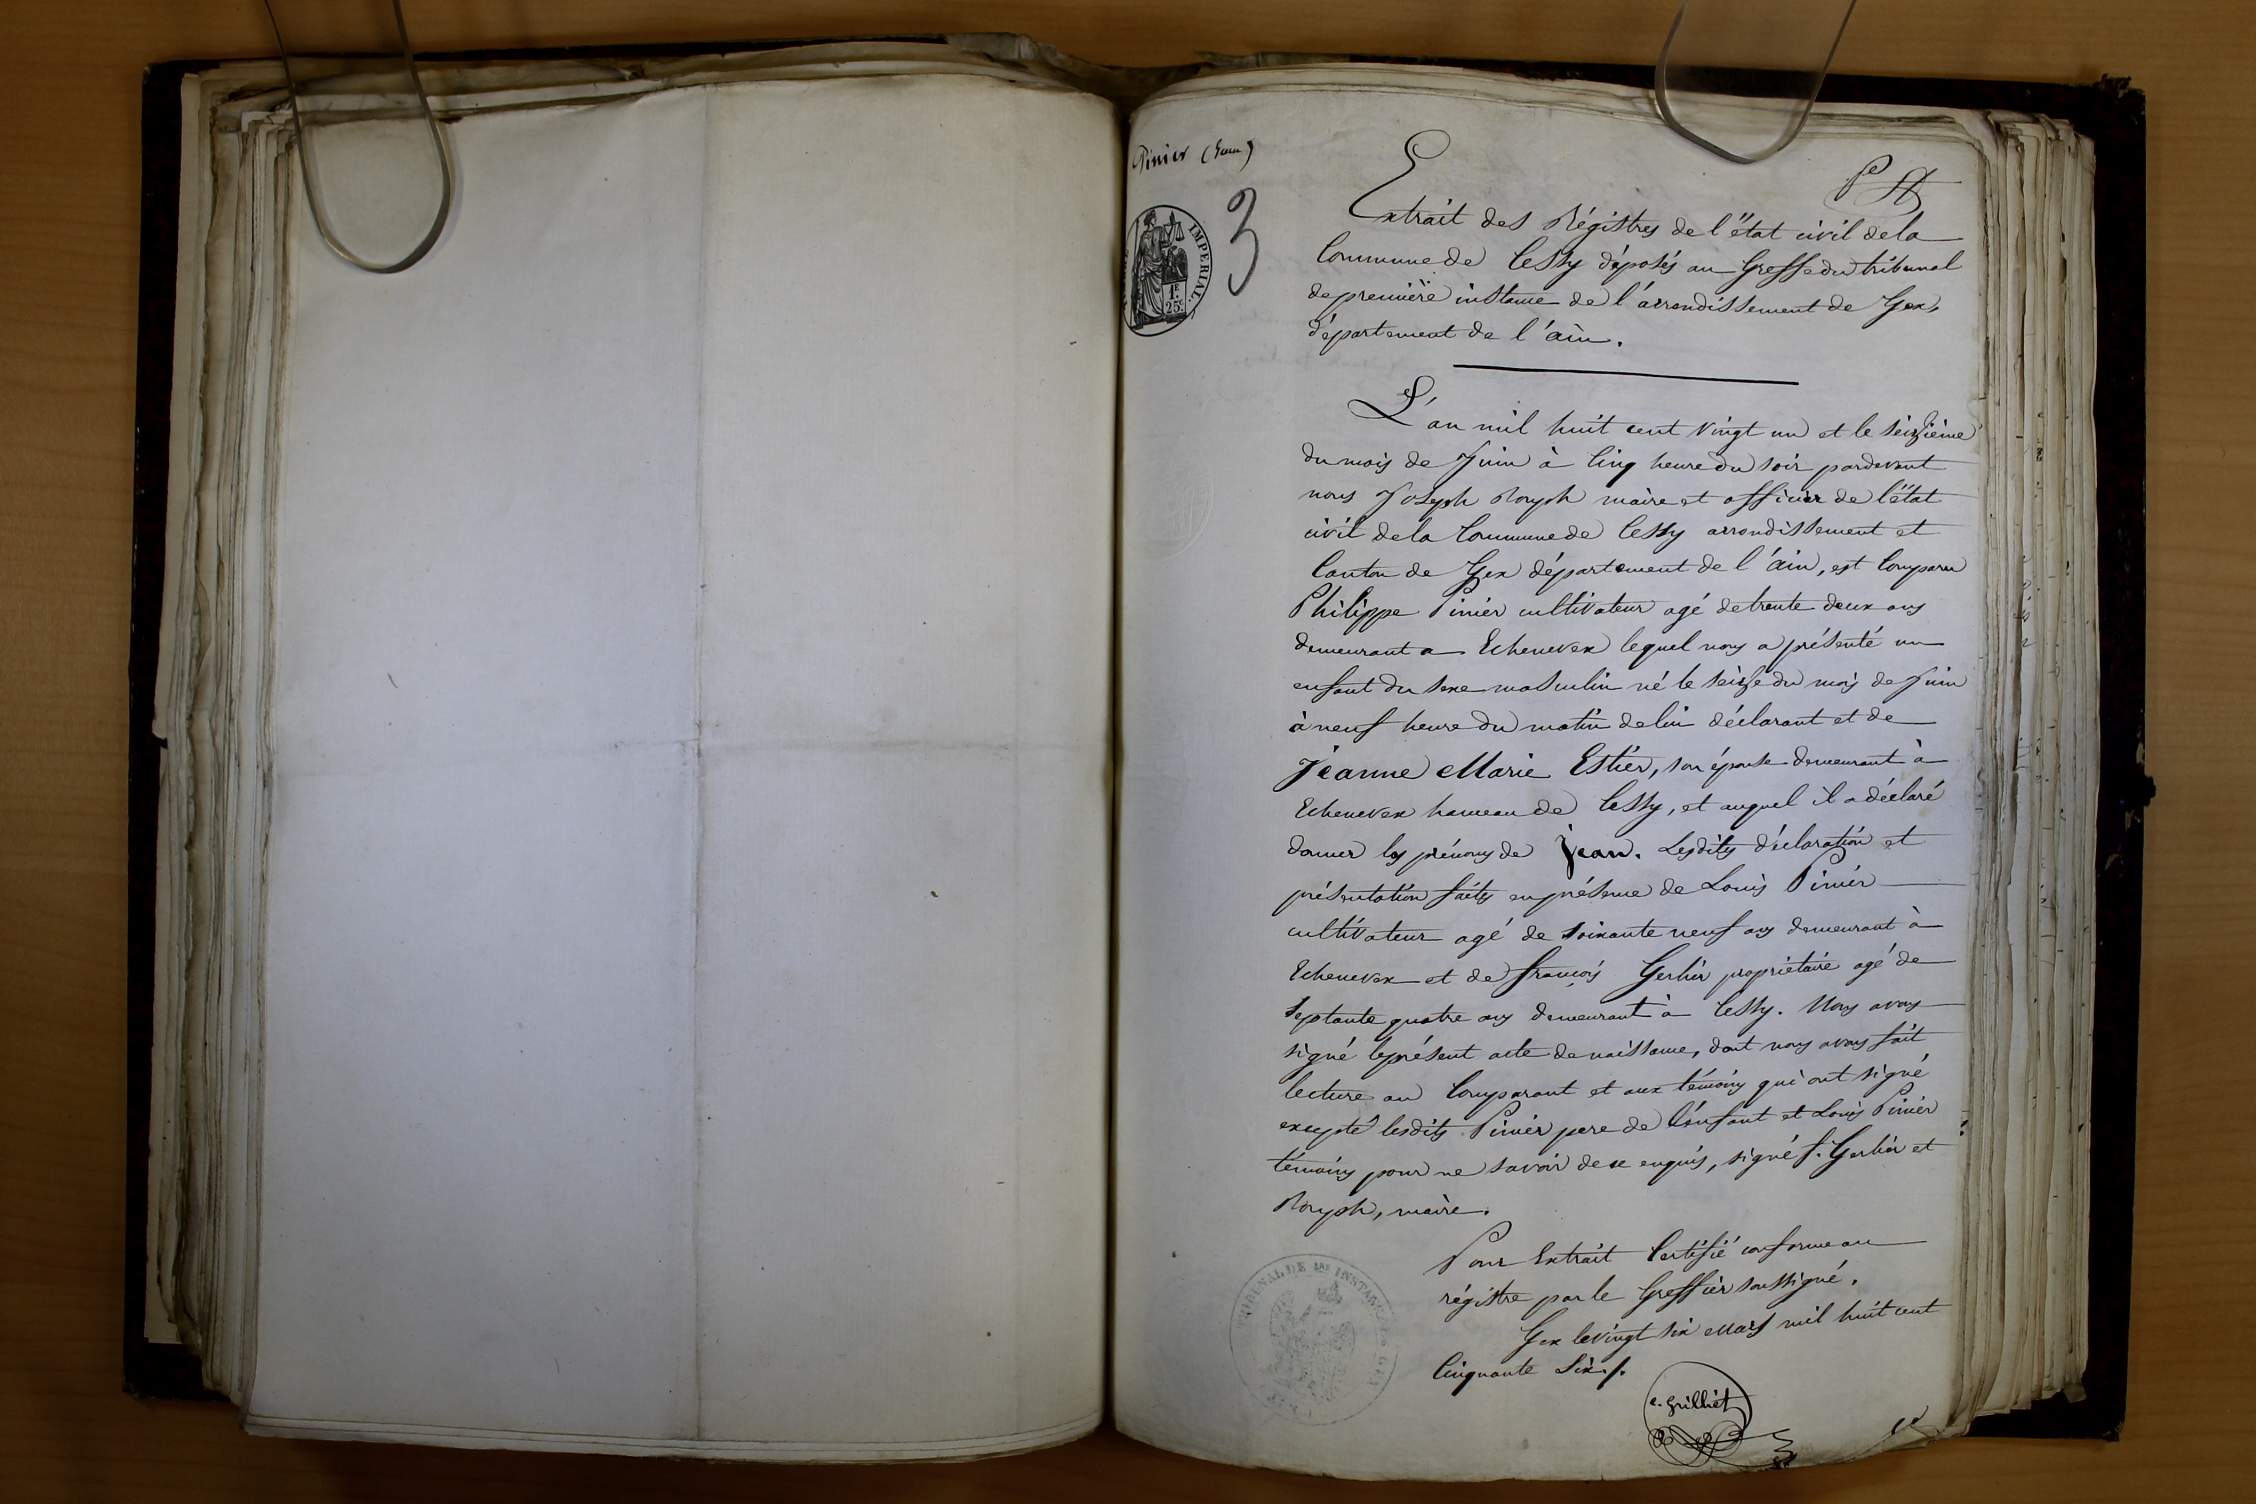 Pinier (Jean)
3
IMPERIAL
1F
25c
Extrait des Régistres de l'état civil de la
Commune de Cessy déposés au Greffe du tribunal
de première instance de l'arrondissement de Gex,
département de l'ain.
L'an mil huit cent vingt un et le seizième
du mois de Juin à Cinq heure du soir pardevant
nous Joseph Rouph maire et officier de l'état
civil de la Commune de Cessy arrondissement et
Canton de Gex département de l'ain, est Comparu
Philippe Pinier cultivateur agé de trente deux ans
demeurant a Echenevex lequel nous a présenté un
enfant du sexe masculin né le seize du mois de Juin
à neuf heure du matin de lui déclarant et de
Jeanne Marie Estier, son épouse demeurant à
Echenevex hameau de Cessy, et auquel il a déclaré
donner les prénoms de Jean. Lesdites déclaration et
présentation faites en présence de Louis Pinier
cultivateur agé de soixante neuf ans demeurant à
Echenevex et de françois Gerlier propriétaire agé de
septante quatre ans demeurant à Cessy. Nous avons
signé le présent acte de naissance, dont nous avons fait
lecture au Comparant et aux témoins qui ont signé
excepté lesdits Pinier pere de l'enfant et Louis Pinier
témoins pour ne savoir de ce enquis, signé f. Gerlier et
Rouph, maire.
Pour Extrait Certifié conforme au
régistre par le Greffier soussigné.
Gex le vingt six Mars mil huit cent
Cinquante Six./.
TRIBUNAL DE 1ERE INSTANCE
e. Grilliet